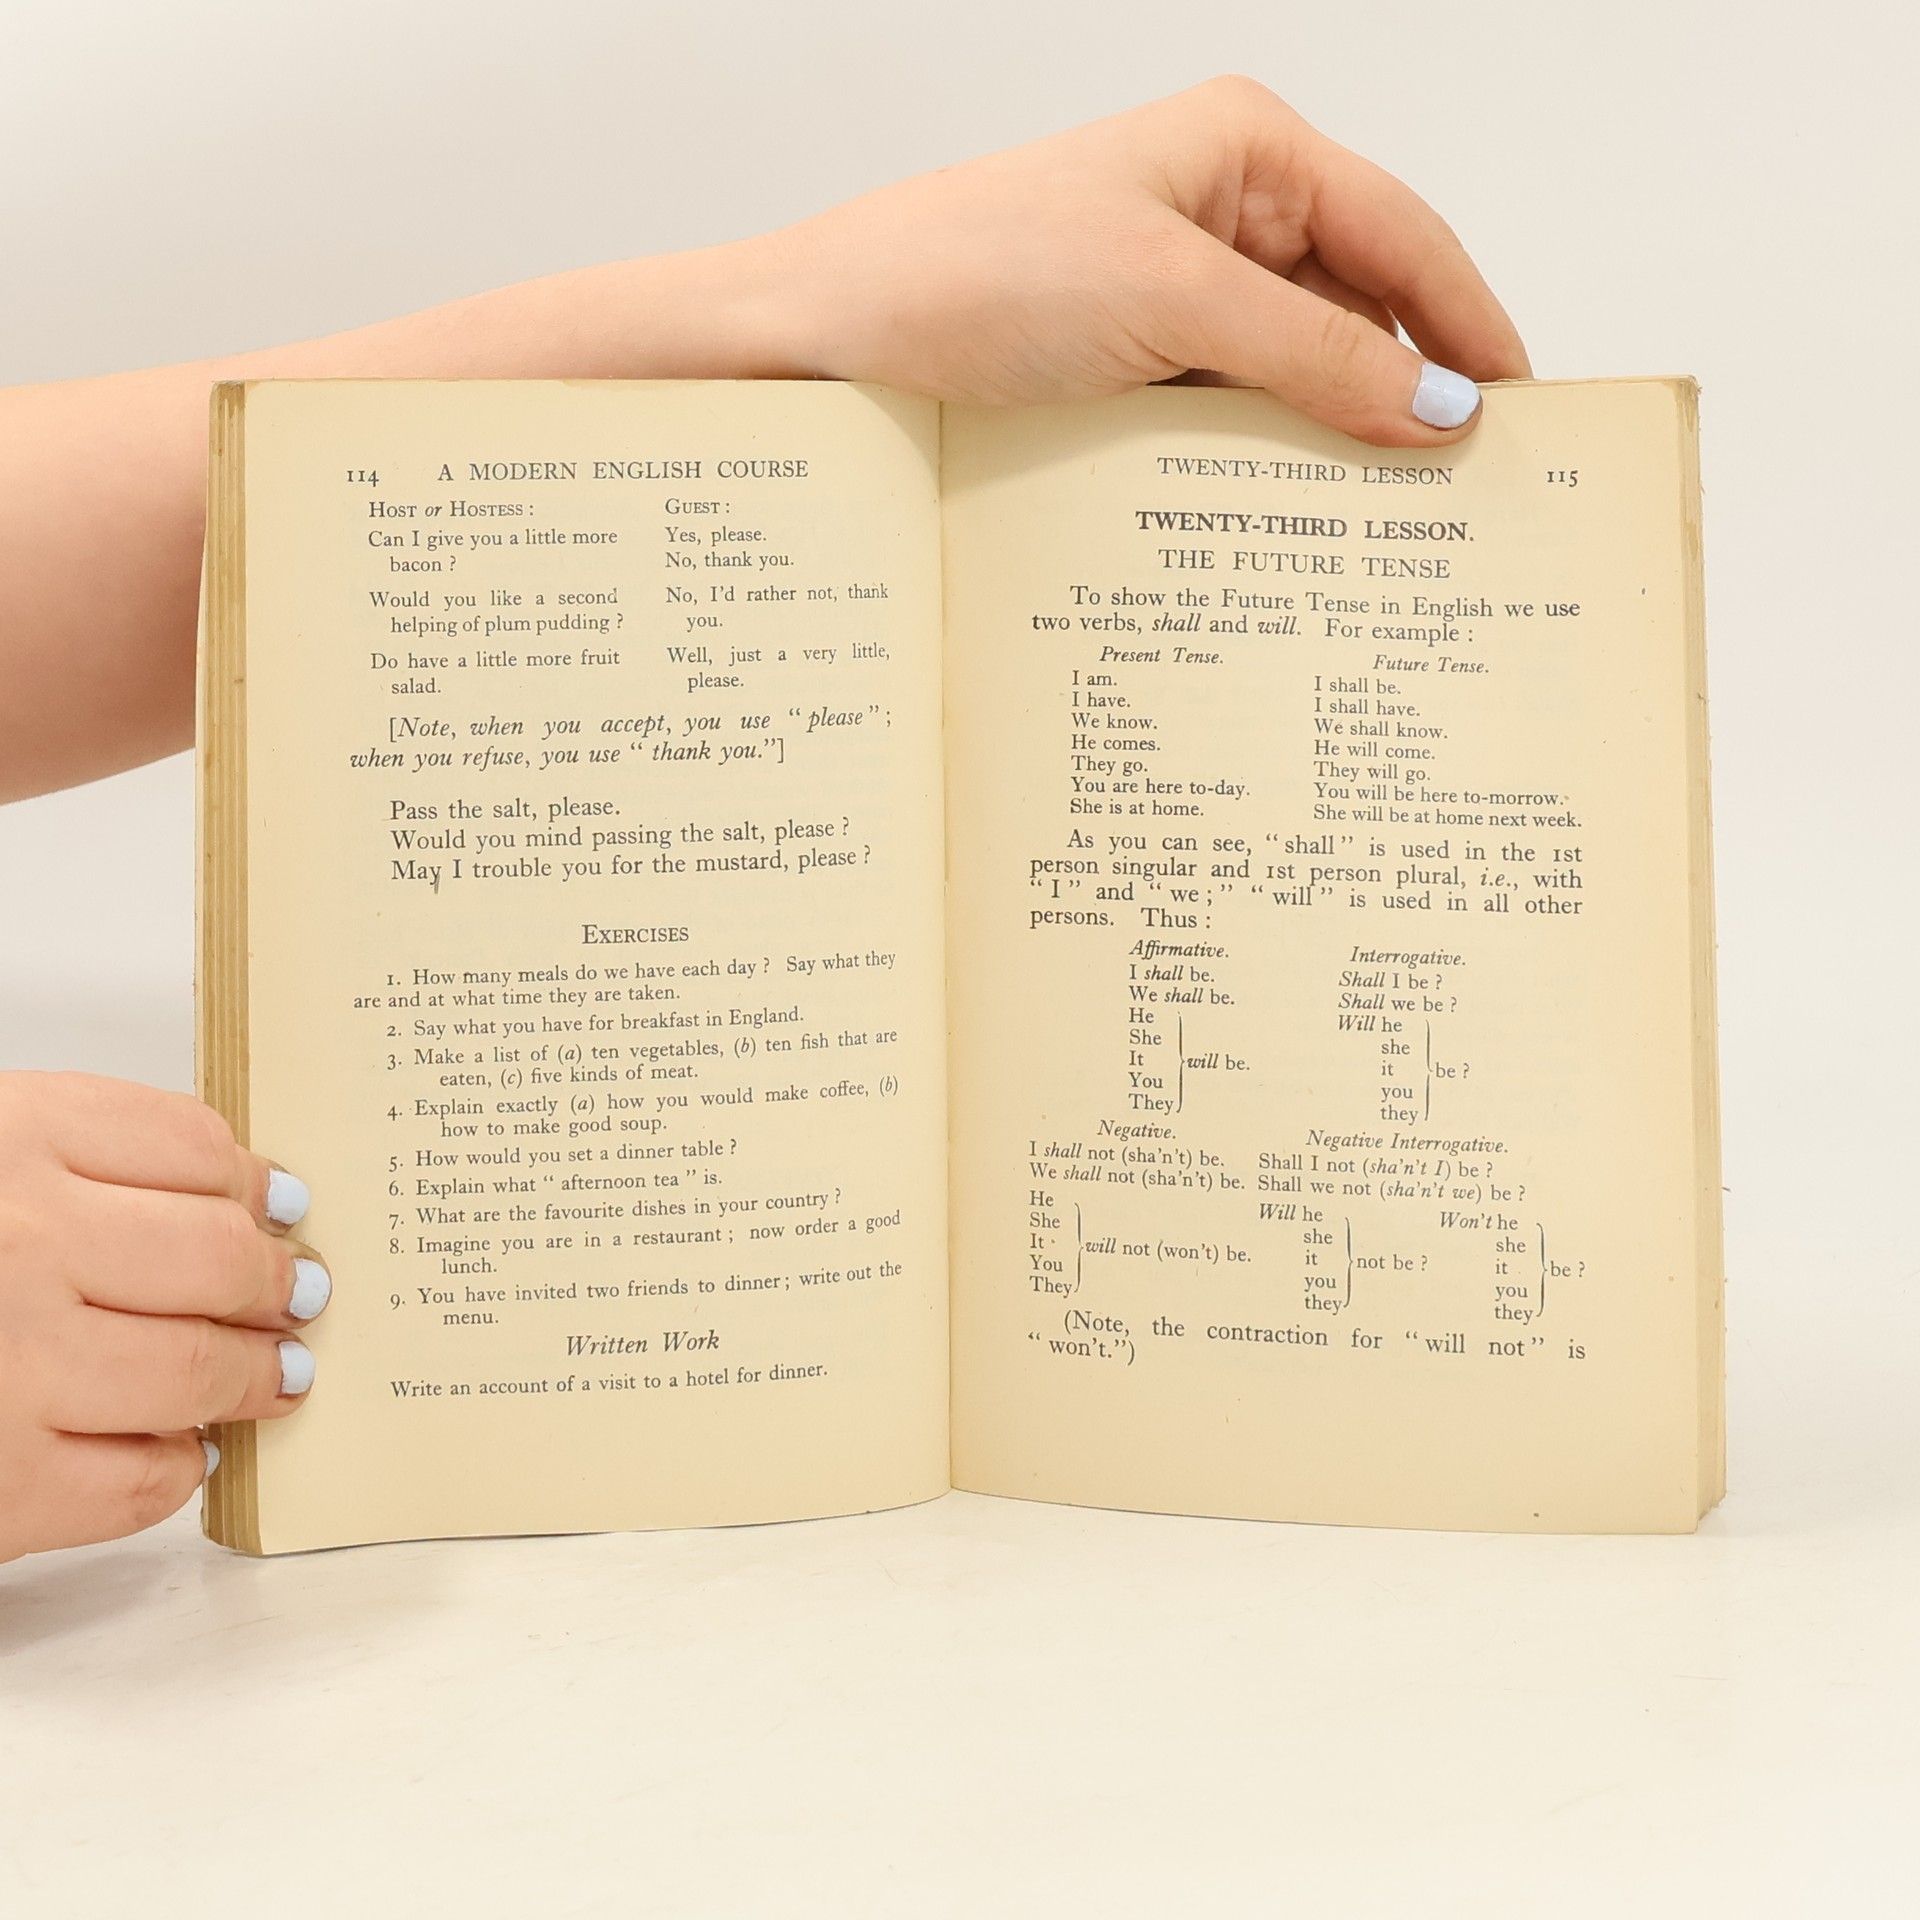 114 A MODERN ENGLISH COURSE
HOST or HOSTESS : GUEST :
Can I give you a little more Yes, please.
bacon ? No, thank you.
Would you like a second No, I'd rather not, thank
helping of plum pudding ? you.
Do have a little more fruit Well, just a very little,
salad. please.
[Note, when you accept, you use “ please ” ;
when you refuse, you use “ thank you.”]
Pass the salt, please.
Would you mind passing the salt, please ?
May I trouble you for the mustard, please ?
EXERCISES
1. How many meals do we have each day ? Say what they
are and at what time they are taken.
2. Say what you have for breakfast in England.
3. Make a list of (a) ten vegetables, (b) ten fish that are
eaten, (c) five kinds of meat.
4. Explain exactly (a) how you would make coffee, (b)
how to make good soup.
5. How would you set a dinner table ?
6. Explain what “ afternoon tea ” is.
7. What are the favourite dishes in your country ?
8. Imagine you are in a restaurant ; now order a good
lunch.
9. You have invited two friends to dinner ; write out the
menu.
Written Work
Write an account of a visit to a hotel for dinner.
TWENTY-THIRD LESSON 115
TWENTY-THIRD LESSON.
THE FUTURE TENSE
To show the Future Tense in English we use
two verbs, shall and will. For example :
Present Tense. Future Tense.
I am. I shall be.
I have. I shall have.
We know. We shall know.
He comes. He will come.
They go. They will go.
You are here to-day. You will be here to-morrow.
She is at home. She will be at home next week.
As you can see, “ shall ” is used in the 1st
person singular and 1st person plural, i.e., with
“ I ” and “ we ; ” “ will ” is used in all other
persons. Thus :
Affirmative. Interrogative.
I shall be. Shall I be ?
We shall be. Shall we be ?
He Will he
She she
It will be. it be ?
You you
They they
Negative. Negative Interrogative.
I shall not (sha'n't) be. Shall I not (sha'n't I) be ?
We shall not (sha'n't) be. Shall we not (sha'n't we) be ?
He Will he Won't he
She she she
It will not (won't) be. it not be ? it be ?
You you you
They they they
(Note, the contraction for “ will not ” is
“ won't.”)